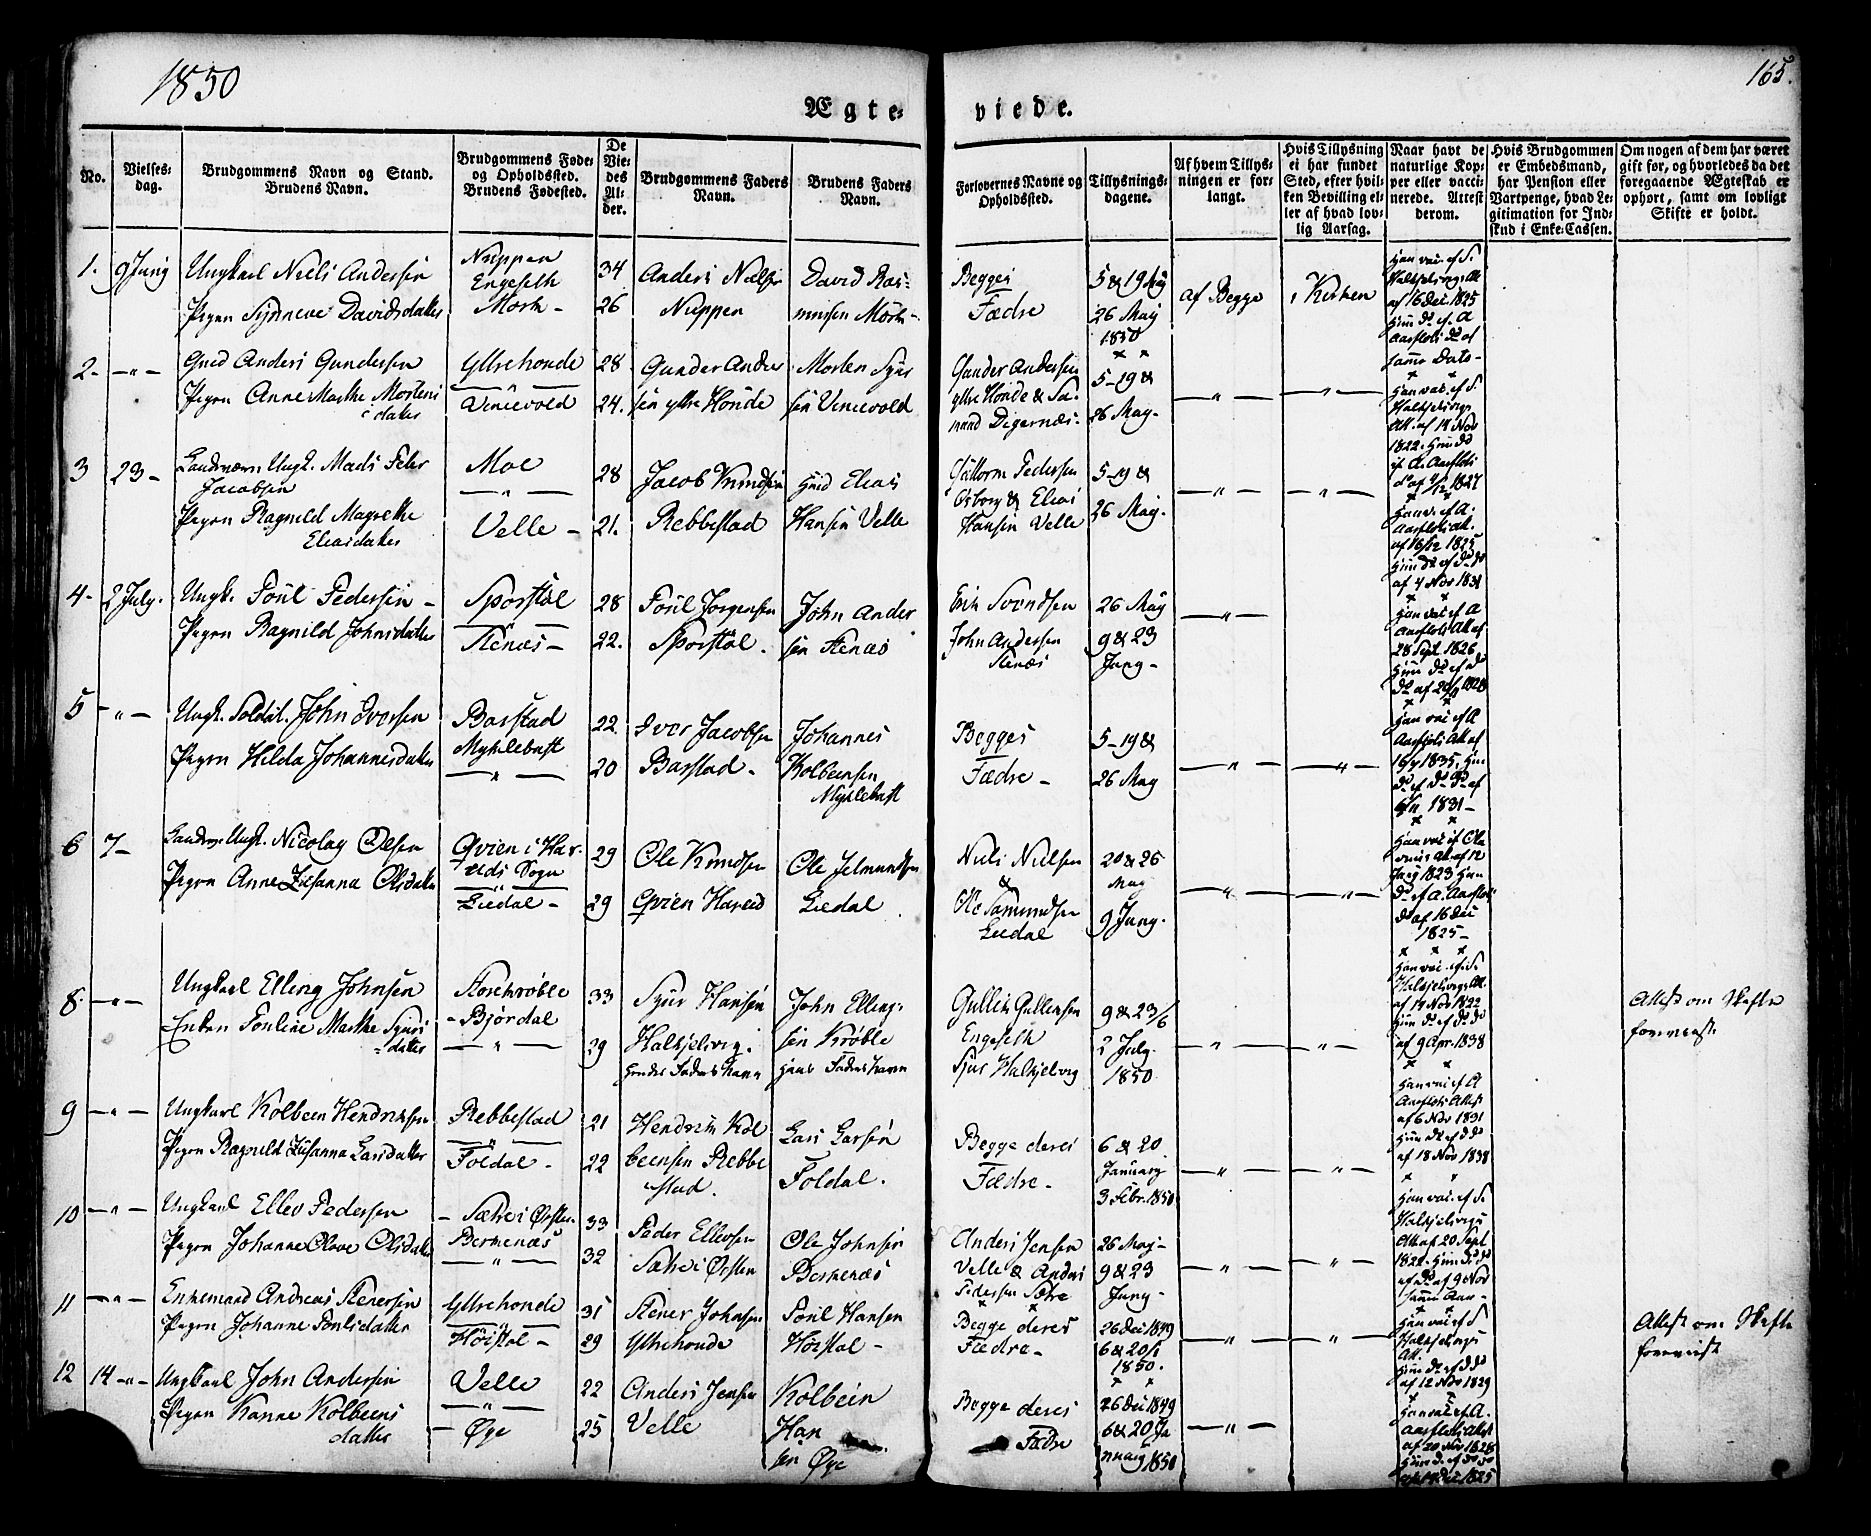 1850
165.
Ægte-
viede.
No.
Vielses-
dag.
Brudgommens Navn og Stand.
Brudens Navn.
Brudgommens Føde-
og Opholdssted.
Brudens Fødested.
De
Vie-
des
Al-
der.
Brudgommens Faders
Navn.
Brudens Faders
Navn.
Forlovernes Navne og
Opholdssted.
Tillysnings-
dagene.
Af hvem Tillys-
ningen er for-
langt.
Hvis Tillysning
ei har fundet
Sted, efter hvil-
ken Bevilling el-
ler af hvad lov-
lig Aarsag.
Naar havt de
naturlige Kop-
per eller vacci-
nerede. Attest
derom.
Hvis Brudgommen
er Embedsmand,
har Pension eller
Vartpenge, hvad Le-
gitimation for Ind-
skud i Enke-Cassen.
Om nogen af dem har været
gift før, og hvorledes da det
foregaaende Ægteskab er
ophørt, samt om lovligt
Skifte er holdt.
1. 9 Juny
Ungkarl Niels Andersen
Pigen Synneve Davidsdatter
Nuppen
Engeseth
Mork -
34
26
Anders Nielsen
Nuppen
David Ras-
musen Mork -
Begges
Fædre
5 & 19 May
26 May
1850
af Begge
i Kirken
Han vac. ef S.
Halkjelsvigs Att.
af 16 Dec. 1825
Hun do ef. A
Aarsflots do af
samme Dato -
2. - " -
Gmd Anders Gundersen
Pigen Anne Marthe Mortens
datter
Yttrehonde
- " -
Vinievold
28
24.
Gunder Ander
sen yttre Honde
Morten Sjur
sen Vinievold
Gunder Andersen
yttre Honde & Sa-
mund Digernæs -
5 - 19 &
26 May -
- " -
- " -
Han vac. ef S.
Halkjelsvigs
Att. af 14 Nov
1822. Hun do
ef A. Aarsflots
do af 1/12 1827
3 23 -
Landværn Ungk. Mads Peter
Jacobsen
Pigen Ragnild Magrethe
Eliasdatter
Moe
- " -
Velle -
28
21.
Jacob Knudsen
Rebbestad
Gmd Elias
Hansen Velle
Guttorm Pedersen
Osborg & Elias
Hansen Velle
5 - 19 &
26 May.
- " -
- " -
Han v. ef A.
Aarsflots Att.
af 16/12 1825
Hun do ef do do
af 4 Nov 1831
4 - 2 July.
Ungk. Poul Pedersen -
Pigen Ragnild Johnsdatter
Sporstøl
- " -
Stenæs -
28
22.
Poul Jørgensen
Sporstøl.
John Ander
sen Stenæs
Erik Svendsen
John Andersen
Stenæs
26 May
9 & 23
Juny -
- " -
Han vac ef A
Aarsflots Att af
28 Sept 1826
Hun do ef do
5 - " -
Ungk. Soldat. John Iversen
Pigen Hilda Johannesdatter
Barstad
Myklebust
- " -
22
20
Iver Jacobsen
Barstad -
Johannes
Kolbeensen
Myklebust
Begges
Fædre -
5 - 19 &
26 May
- " -
- " -
Han vac ef A
Aarsflots Att af
1835, Hun
do ef do do af
1831 -
6 7 -
Landv. Ungk. Nicolay Olsen
Pigen Anne Zusanna Olsdatter
Qvien i Har-
eids Sogn
- " -
Liedal -
29
29
Ole Knudsen
Qvien Hareid
Ole Jetmundsen
Liedal
Niels Nielsen
&
Ole Samundsen
Liedal
20 & 26
May
9 Juny.
- " -
- " -
Juny 1823 Hun
do ef A. Aarsflots
do af 16 Dec
1825 -
8. - " -
Ungkarl Elling Johnsen
Enken Pouline Marthe Sjurs
datter
Storekrøble
- Bjørdal
- " -
33
39
Sjur Hansen
Halkjelsvig.
Hendes Faders Navn
John Elling-
sen Krøble
Hans Faders Navn
Gullik Gulliksen
Engeseth
Sjur Halkjelsvig
9 & 23/6
2 July.
1850
- " -
- " -
Han vac. ef S.
Halkjelsvigs Att.
af 14 Nov 1822
Hun do ef do do
af 9 Apr. 1838
Attest om Skifte
foreviist
9 - " -
Ungkarl Kolbeen Hendriksen
Pigen Ragnild Zusanna Larsdatter
Rebbestad
- " -
Foldal -
21
22
Hendrik Kol
beensen Rebbe
stad.
Lars Larsen
Foldal.
Begge deres
Fædre -
6 & 20
January
3 Febr. 1850
- " -
- " -
Han vac ef A
Aarsflots Attest
af 6 Nov 1831
Hun do ef do do
af 18 Nov 1838
10 - " -
Ungkarl Ellev Pedersen
Pigen Johanne Olave Olsdatter
- Sætre i Ørsten
Berkenæs
- " -
33
32
Peder Ellevsen
Sætre i Ørsten
Ole Johnsen
Berkenæs
Anders Jensen
Velle & Anders
Pedersen Sætre
26 May -
9 & 23
Juny -
- " -
- " -
Han vac. ef S.
Halkjelsvigs
Att. af 20 Sept
1822. Hun do do
af do af 9 Nov
samme Aar -
11 - " -
Enkemand Andreas Stenersen
Pigen Johanne Poulsdatter
Yttrehonde
- " -
Høistøl -
31
29
Stener Johnsen
Yttrehonde
Poul Hansen
Høistøl -
Begge deres
Fædre -
26 Dec 1849
6 & 20/1
1850.
- " -
- " -
Han vac ef S
Halkjelsvigs
Att.
Hun do ef do do
af 12 Nov 1829
Attest om Skifte
foreviist
12 14 - " -
Ungkarl John Andersen
Pigen Hanne Kolbeens
datter
Velle
- " -
- Øye
22
25
Anders Jensen
Velle
Kolbein
Han
sen Øye
Begge deres
Fædre
26 Dec 1849
6 & 20 Ja
nuary 1850
- " -
Han vac ef A.
Aarsflots Attest
af 20 Nov 1828
Hun do ef do do
af 14 Dec 1825